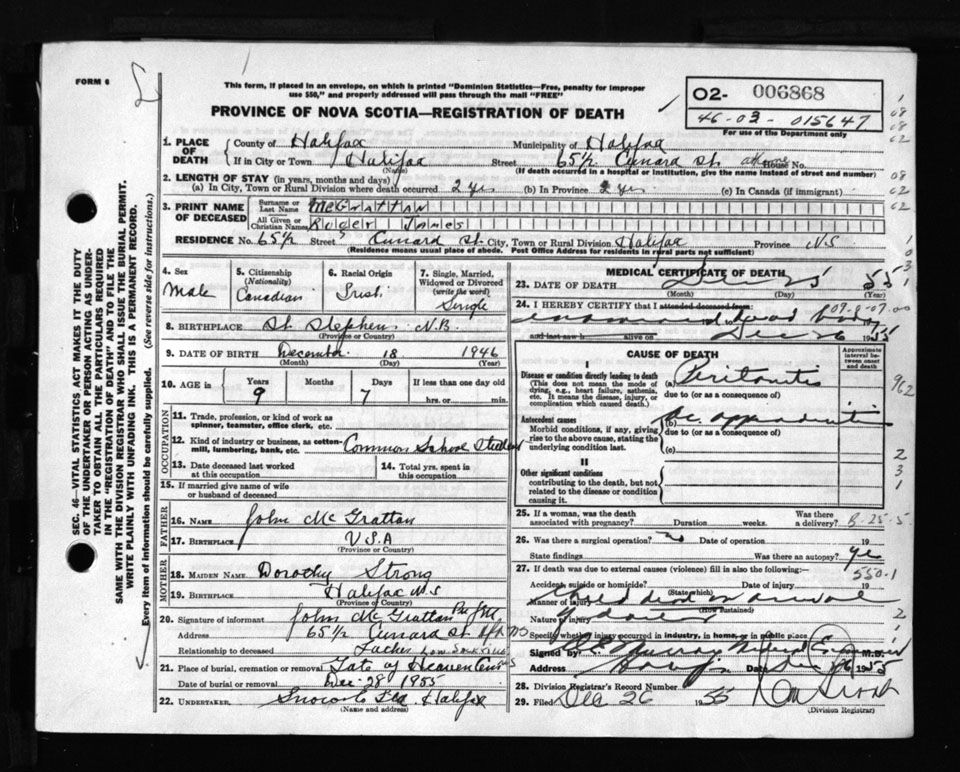 FORM 6
This form, if placed in an envelope, on which is printed "Dominion Statistics—Free, penalty for improper
use $50," and properly addressed will pass through the mail "FREE"
PROVINCE OF NOVA SCOTIA—REGISTRATION OF DEATH
O2- 006868
46-03-015647
For use of the Department only
1. PLACE OF DEATH
County of Halifax Municipality of Halifax
If in City or Town Halifax Street 65½ Cunard St. at home House No.
(Name) (If death occurred in a hospital or institution, give the name instead of street and number)
2. LENGTH OF STAY (in years, months and days)
(a) In City, Town or Rural Division where death occurred 2 yrs (b) In Province 2 yrs (c) In Canada (if immigrant)
3. PRINT NAME OF DECEASED
Surname or Last Name McGrattan
All Given or Christian Names Roger James
RESIDENCE No. 65½ Street Cunard St. City, Town or Rural Division Halifax Province N.S
(Residence means usual place of abode. Post Office Address for residents in rural parts not sufficient)
4. Sex
Male
5. Citizenship
(Nationality)
Canadian
6. Racial Origin
Irish
7. Single, Married,
Widowed or Divorced
(write the word)
Single
8. BIRTHPLACE St. Stephens N.B.
(Province or Country)
9. DATE OF BIRTH December 18 1946
(Month) (Day) (Year)
10. AGE in
Years Months Days If less than one day old
9 7 hrs. or min.
OCCUPATION
11. Trade, profession, or kind of work as
spinner, teamster, office clerk, etc.
12. Kind of industry or business, as cotton-
mill, lumbering, bank, etc. Common School Student
13. Date deceased last worked
at this occupation
14. Total yrs. spent in
this occupation
15. If married give name of wife
or husband of deceased
FATHER
16. NAME John McGrattan
17. BIRTHPLACE U.S.A
(Province or Country)
MOTHER
18. MAIDEN NAME Dorothy Strong
19. BIRTHPLACE Halifax N.S
(Province or Country)
20. Signature of informant John McGrattan
Address 65½ Cunard St.
Relationship to deceased Father
21. Place of burial, cremation or removal Gate of Heaven
Date of burial or removal Dec. 28 1955
22. UNDERTAKER Snow Co Ltd Halifax
(Name and address)
MEDICAL CERTIFICATE OF DEATH
23. DATE OF DEATH Dec 25 55
(Month) (Day) (Year)
24. I HEREBY CERTIFY that I attended deceased from
examined dead body
and last saw alive on Dec 26 1955
CAUSE OF DEATH
Approximate
interval be-
tween onset
and death
I
Disease or condition directly leading to death
(This does not mean the mode of
dying, e.g., heart failure, asthenia,
etc. It means the disease, injury, or
complication which caused death.)
(a) Peritonitis
due to (or as a consequence of)
Antecedent causes
Morbid conditions, if any, giving
rise to the above cause, stating the
underlying condition last.
(b) ac. appendicitis
due to (or as a consequence of)
(c)
II
Other significant conditions
contributing to the death, but not
related to the disease or condition
causing it.
25. If a woman, was the death
associated with pregnancy? Duration weeks. Was there
a delivery? B-25-5
26. Was there a surgical operation? no Date of operation 19
State findings Was there an autopsy? Yes
27. If death was due to external causes (violence) fill in also the following:—
550-1
Accident, suicide or homicide? Date of injury 19
(State which)
Manner of injury
(How sustained)
Nature of injury
Specify whether injury occurred in industry, in home, or in public place
Signed by Murray Medical Examiner M.D.
Address Date Dec 26 1955
28. Division Registrar's Record Number
29. Filed Dec 26 1955
(Division Registrar)
SEC. 46—VITAL STATISTICS ACT MAKES IT THE DUTY
OF THE UNDERTAKER OR PERSON ACTING AS UNDER-
TAKER TO OBTAIN ALL THE PARTICULARS REQUIRED
IN THE "REGISTRATION OF DEATH" AND TO FILE THE
SAME WITH THE DIVISION REGISTRAR WHO SHALL ISSUE THE BURIAL PERMIT.
WRITE PLAINLY WITH UNFADING INK. THIS IS A PERMANENT RECORD.
Every item of information should be carefully supplied. (See reverse side for instructions.)